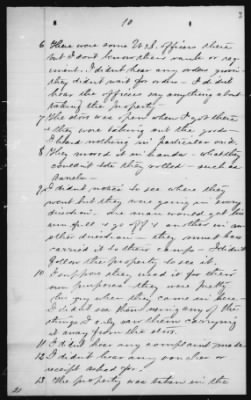 10
6 There were some U.S. officers there
but I dont know their rank or reg
iment. I didnt hear any orders given
they didnt wait for orders. I didnt
hear the officers say anything about
taking the property.
7 The door was open when I got there
& they were taking out the goods
I heard nothing in particular said.
8 They moved it in hands - what they
couldnt tote they rolled - such as
barrels -
9 I didnt notice to see where they
went but they were going in every
direction. One man would get his
arm full & go off & another in an
other direction & they must have
carried it to their camps - I didnt
follow the property to see it.
10 I suppose they used it for their
own purposes they were pretty
hungry when they came in here.
I didnt see them using any of the
things I only saw them carrying
it away from the store.
11 I didnt hear any complaint made
12 I didnt hear any voucher or
receipt asked for.
13 The property was taken in the